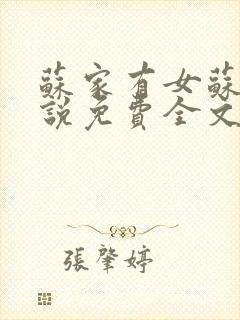 蘇家有女蘇
說免費全文
張肇婷